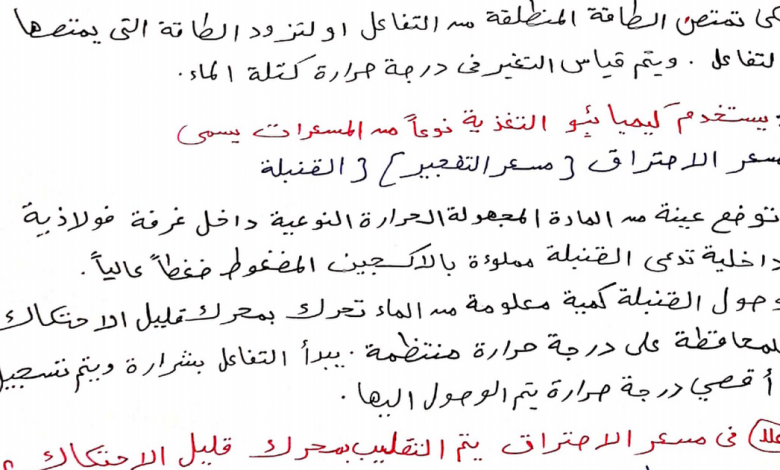 تمتص الطاقة المنطلقة من التفاعل او لتزود الطاقة التي يمتصها
لتفاعل . ويتم قياس التغير في درجة حرارة كتلة الماء .
يستخدم كيميائيو التغذية نوعاً من المسعرات يسمى
سعر الاحتراق { مسعر التفجير } { القنبلة
توضع عينة من المادة المجهولة الحرارة النوعية داخل غرفة فولاذية
داخلية تدعى القنبلة مملوءة بالاكسجين المضغوط ضغطاً عالياً .
وحول القنبلة كمية معلومة من الماء تحرك بمحرك قليل الاحتكاك
لمحافظة على درجة حرارة منتظمة . يبدأ التفاعل بشرارة ويتم تسجيل
أقصي درجة حرارة يتم الوصول اليها .
في مسعر الاحتراق يتم التقليب بمحرك قليل الاحتكاك ؟